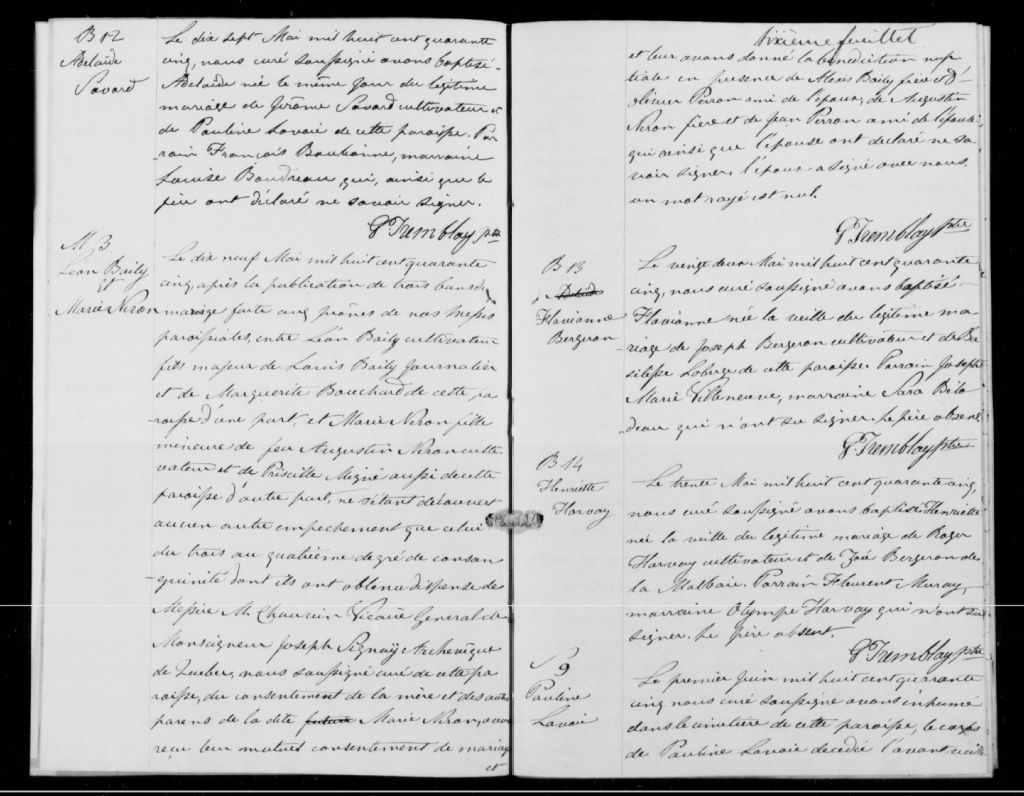 B 12
Adelaïde
Savard
Le dix sept Mai mil huit cent quarante
cinq, nous curé soussigné avons baptisé
Adelaïde née le même jour du légitime
mariage de Jérôme Savard cultivateur et
de Pauline Lavoie de cette paroisse. Par
rain François Boulianne, marraine
Louise Boudreau qui, ainsi que le
père ont déclaré ne savoir signer.
G Tremblay ptre
M 3
Léon Baily
Et
Marie Niron
Le dix neuf Mai mil huit cent quarante
cinq, après la publication de trois bans de
mariage faite aux prônes de nos messes
paroissiales, entre Léon Baily cultivateur
fils majeur de Louis Baily Journalier
et de Marguerite Bouchard de cette pa
roisse d'une part, et Marie Niron fille
mineure de feu Augustin Niron culti
vateur et de Priscille aussi de cette
paroisse d'autre part, ne s'étant découvert
aucun autre empechement que celui
du trois au quatrième degré de consan
guinité dont ils ont obtenu dispense de
Messire Vicaire General de
Monseigneur Joseph Signaÿ Archevêque
de Quebec, nous soussigné curé de cette pa
roisse, du consentement de la mère et des autres
parens de la dite future Marie Niron, avons
reçu leur mutuel consentement de mariage
et
Sixième feuillet
et leur avons donné la bénédiction nup
tiale en presence de Alexis Baily père et d'
Olivier Perron ami de l'époux, de Augustin
Niron frère et de Jean Perron ami de l'épouse
qui ainsi que l'épouse ont declaré ne sa
voir signer, l'époux a signé avec nous.
un mot rayé est nul.
G Tremblay ptre
B 13
Adelaïde
Flavianne
Bergeron
Le vingt deux Mai mil huit cent quarante
cinq, nous curé soussigné avons baptisé
Flavianne née la veille du légitime ma
riage de Joseph Bergeron cultivateur et de Ba
silisse Loberge de cette paroisse. Parrain Joseph
Marie Villeneuve, marraine Sara Bilo
deau qui n'ont su signer. Le père absent.
G Tremblay ptre
B 14
Henriette
Harvay
Le trente Mai mil huit cent quarante cinq,
nous curé soussigné avons baptisé Henriette
née la veille du légitime mariage de Roger
Harvay cultivateur et de Zoé Bergeron de
la Malbaie. Parrain Fleurent Murray,
marraine Olympe Harvay qui n'ont su
signer. Le père absent.
G Tremblay ptre
S 9
Pauline
Lavoie
Le premier Juin mil huit cent quarante
cinq nous curé soussigné avons inhumé
dans le cimetière de cette paroisse, le corps
de Pauline Lavoie decedée l'avant veille